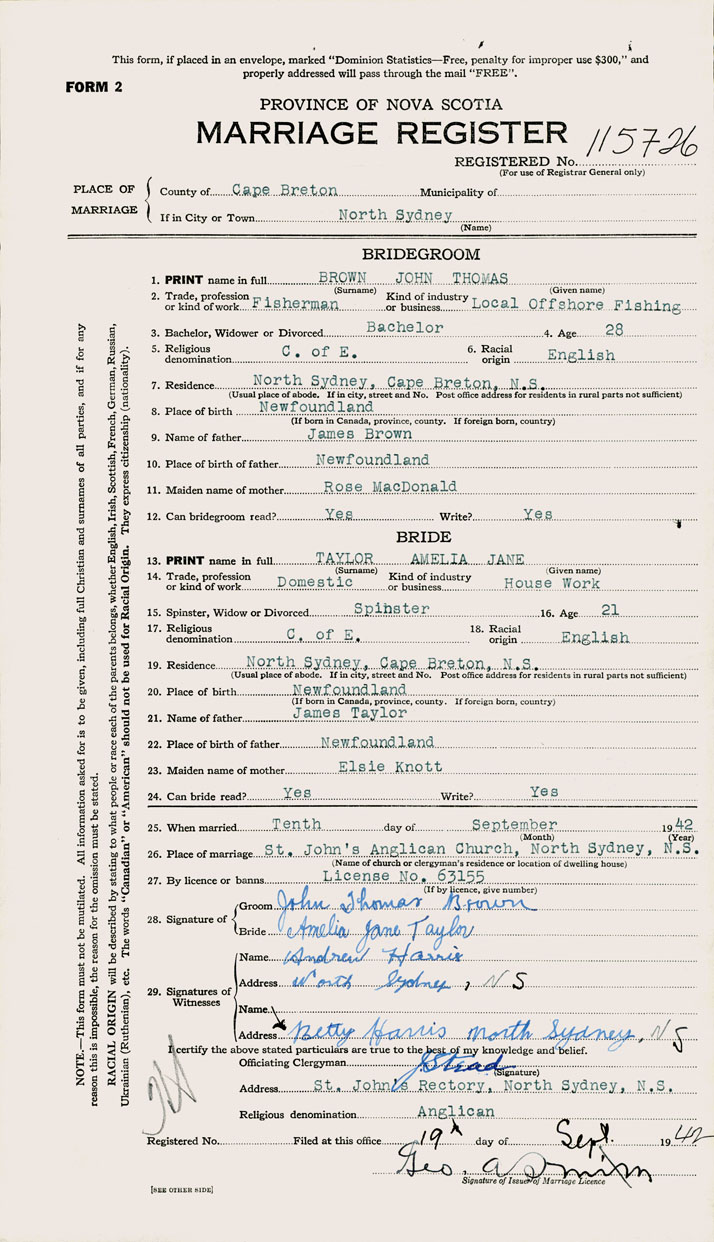 This form, if placed in an envelope, marked "Dominion Statistics—Free, penalty for improper use $300," and
properly addressed will pass through the mail "FREE".
FORM 2
PROVINCE OF NOVA SCOTIA
MARRIAGE REGISTER
115726
REGISTERED No.
(For use of Registrar General only)
PLACE OF MARRIAGE
County of Cape Breton Municipality of
If in City or Town North Sydney
(Name)
BRIDEGROOM
1. PRINT name in full BROWN JOHN THOMAS
(Surname) (Given name)
2. Trade, profession or kind of work Fisherman Kind of industry or business Local Offshore Fishing
3. Bachelor, Widower or Divorced Bachelor 4. Age 28
5. Religious denomination C. of E. 6. Racial origin English
7. Residence North Sydney, Cape Breton, N.S.
(Usual place of abode. If in city, street and No. Post office address for residents in rural parts not sufficient)
8. Place of birth Newfoundland
(If born in Canada, province, county. If foreign born, country)
9. Name of father James Brown
10. Place of birth of father Newfoundland
11. Maiden name of mother Rose MacDonald
12. Can bridegroom read? Yes Write? Yes
BRIDE
13. PRINT name in full TAYLOR AMELIA JANE
(Surname) (Given name)
14. Trade, profession or kind of work Domestic Kind of industry or business House Work
15. Spinster, Widow or Divorced Spihster 16. Age 21
17. Religious denomination C. of E. 18. Racial origin English
19. Residence North Sydney, Cape Breton, N.S.
(Usual place of abode. If in city, street and No. Post office address for residents in rural parts not sufficient)
20. Place of birth Newfoundland
(If born in Canada, province, county. If foreign born, country)
21. Name of father James Taylor
22. Place of birth of father Newfoundland
23. Maiden name of mother Elsie Knott
24. Can bride read? Yes Write? Yes
25. When married Tenth day of September 1942
(Month) (Year)
26. Place of marriage St. John's Anglican Church, North Sydney, N.S.
(Name of church or clergyman's residence or location of dwelling house)
27. By licence or banns License No. 63155
(If by licence, give number)
28. Signature of
Groom John Thomas Brown
Bride Amelia Jane Taylor
29. Signatures of Witnesses
Name Andrew Harris
Address North Sydney, N S
Name
Address Betty Harris North Sydney, N S
I certify the above stated particulars are true to the best of my knowledge and belief.
Officiating Clergyman Stead
(Signature)
Address St. John's Rectory, North Sydney, N.S.
Religious denomination Anglican
Registered No. Filed at this office 19th day of Sept. 1942
Geo. A
Signature of Issuer of Marriage Licence
[SEE OTHER SIDE]
NOTE.—This form must not be mutilated. All information asked for is to be given, including full Christian and surnames of all parties, and if for any
reason this is impossible, the reason for the omission must be stated.
RACIAL ORIGIN will be described by stating to what people or race each of the parents belongs, whether English, Irish, Scottish, French, German, Russian,
Ukrainian (Ruthenian), etc. The words "Canadian" or "American" should not be used for Racial Origin. They express citizenship (nationality).